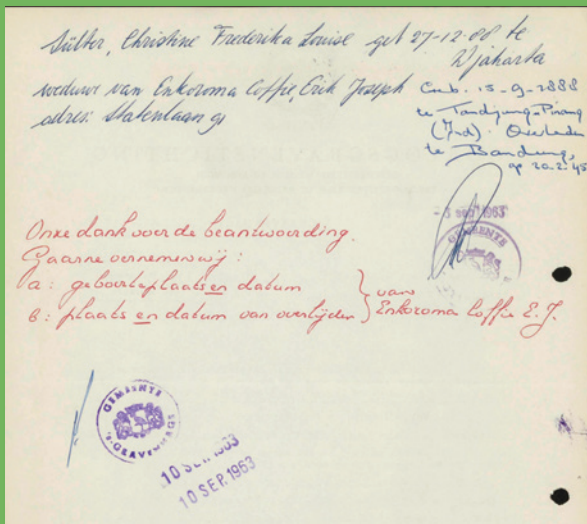 Sülter, Christine Frederika Louise geb 27-12-88 te
Djakarta
weduwe van Enkoroma Coffie, Erik Joseph
adres: Statenlaan 91
Geb. 15-9-1888
te Tandjung-Pinang
(Ind). Overleden
te Bandung,
op 20.2.45
- 3 sep 1963
GEMEENTE
Onze dank voor de beantwoording.
Gaarne vernemen wij:
a: geboorteplaats en datum
b: plaats en datum van overlijden } van
Enkoroma Coffie E.J.
GEMEENTE
'S-GRAVENHAGE
10 SEP. 1963
10 SEP. 1963